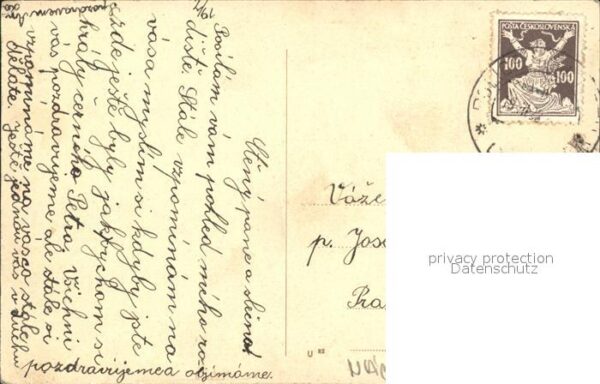 Ctěný pane a slečno!
Posílám vám pohled mého ro
diště. Stále vzpomínám na
vása myslím si kdyby jste
zde ještě byly jak bychom si
hrály černího Petra. Všichni
vás pozdravujeme ale stále si
vzpomínáme na vás co stále
dělate. Ještě jednou vás v duchu
pozdravujemea objímáme.
POŠTA ČESKOSLOVENSKÁ
100 100
Váže
p. Jose
Pra
U
privacy protection
Datenschutz